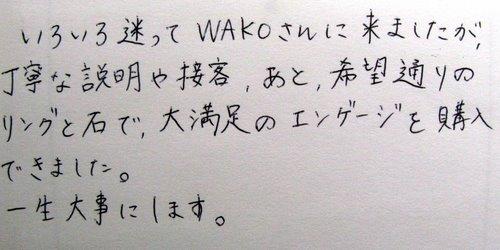 いろいろ迷って WAKOさんに来ましたが、
丁寧な説明や接客、あと、希望通りの
リングと石で、大満足のエンゲージを購入
できました。
一生大事にします。